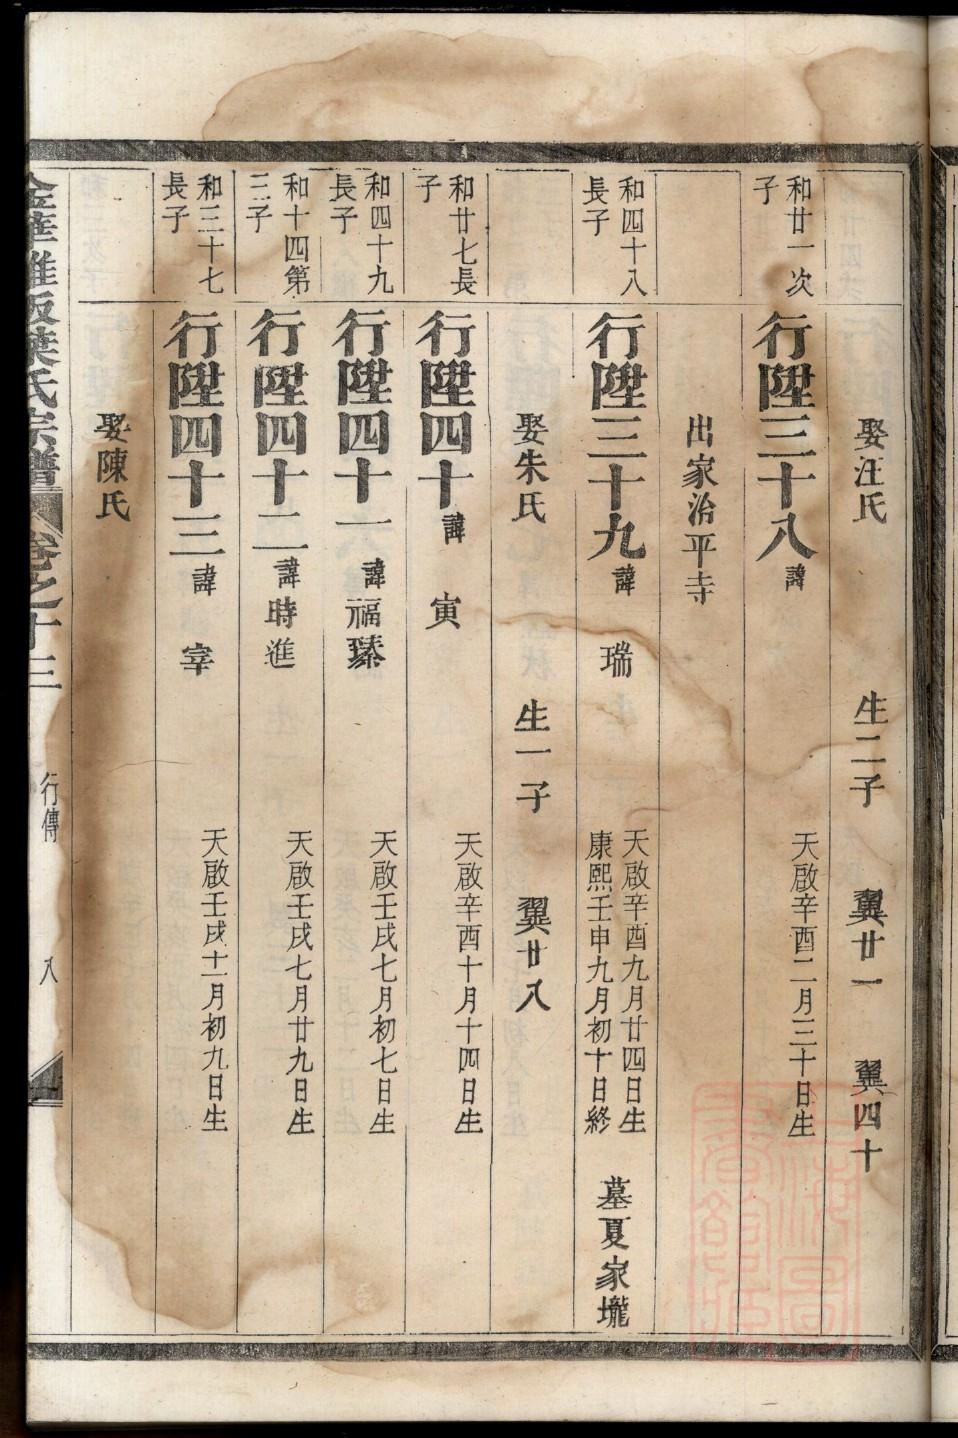 娶汪氏 生二子 翼廿一 翼四十
和廿一次子
行陞三十八 諱 天啟辛酉二月三十日生
出家治平寺
和四十八長子
行陞三十九 諱 瑞 天啟辛酉九月廿四日生 康熙壬申九月初十日終 墓夏家壠
娶朱氏 生一子 翼廿八
和廿七長子
行陞四十 諱 寅 天啟辛酉十月十四日生
和四十九長子
行陞四十一 諱福瑧 天啟壬戌七月初七日生
和十四第三子
行陞四十二 諱時進 天啟壬戌七月廿九日生
和三十七長子
行陞四十三 諱 宰 天啟壬戌十二月初九日生
娶陳氏
葉氏宗譜 卷之十三 行傳 八